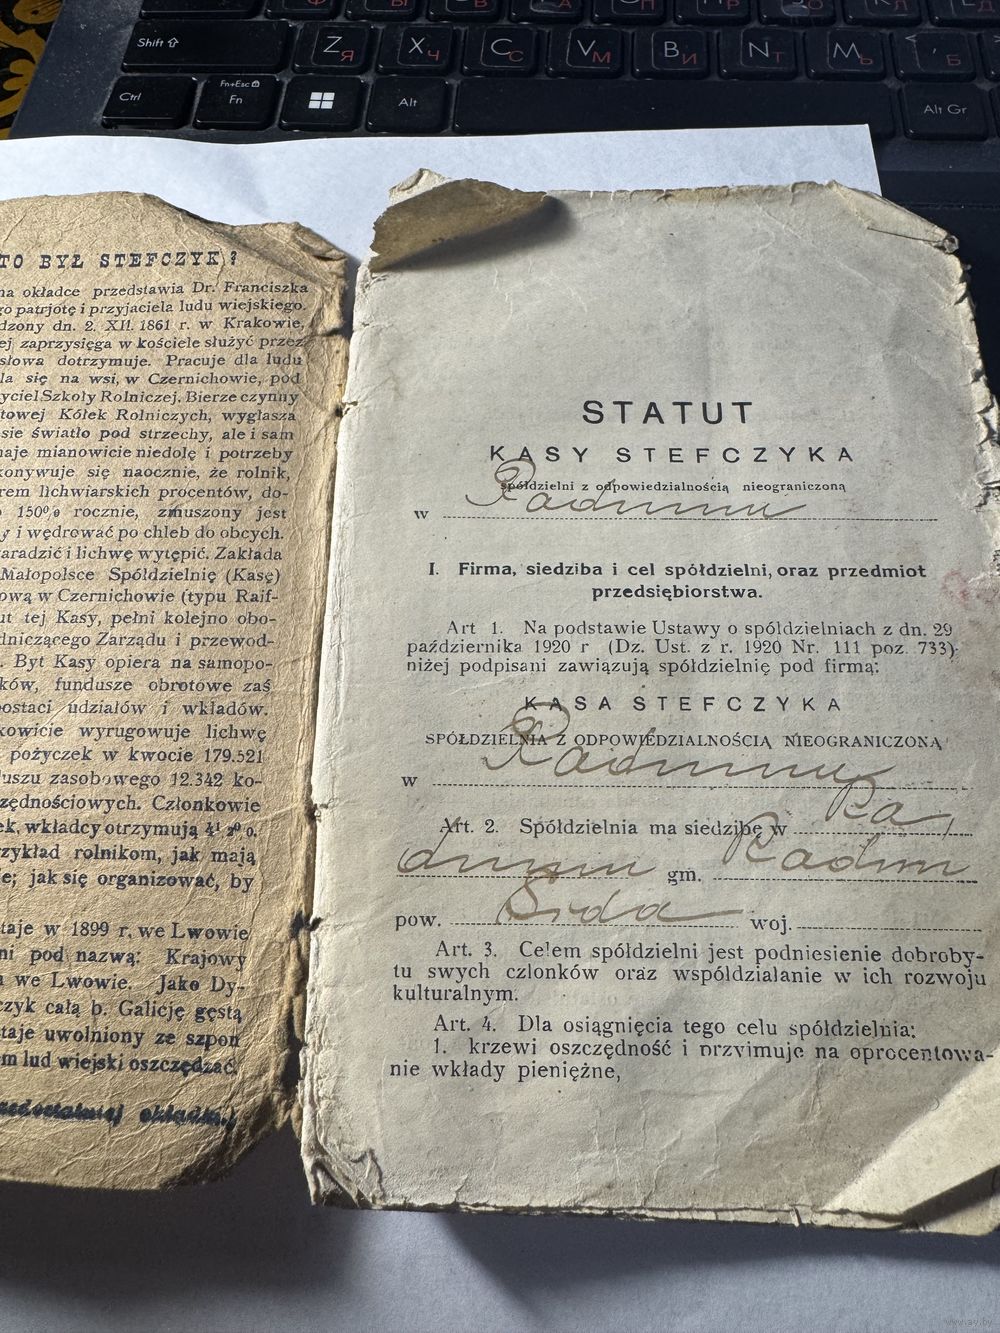 Shift
Z Я X Ч C С V М B И N Т M Ь Б
Ctrl Fn+Esc Fn Alt Alt Gr
TO BYŁ STEFCZYK?
na okładce przedstawia Dr. Franciszka
go patrjotę i przyjaciela ludu wiejskiego.
dzony dn. 2. XII. 1861 r. w Krakowie,
ej zaprzysięga w kościele służyć przez
słowa dotrzymuje. Pracuje dla ludu
la się na wsi, w Czernichowie, pod
yciel Szkoły Rolniczej. Bierze czynny
towej Kółek Rolniczych, wygłasza
sie światło pod strzechy, ale i sam
naje mianowicie niedolę i potrzeby
konywuje się naocznie, że rolnik,
rem lichwiarskich procentów, do-
150% rocznie, zmuszony jest
y i wędrować po chleb do obcych.
aradzić i lichwę wytępić. Zakłada
Małopolsce Spółdzielnię (Kasę)
ową w Czernichowie (typu Raif-
ut tej Kasy, pełni kolejno obo-
dniczącego Zarządu i przewod-
. Byt Kasy opiera na samopo-
ków, fundusze obrotowe zaś
postaci udziałów i wkładów.
kowicie wyrugowuje lichwę
pożyczek w kwocie 179.521
duszu zasobowego 12.342 ko-
zędnościowych. Członkowie
ek, wkładcy otrzymują 4½%.
rzykład rolnikom, jak mają
e; jak się organizować, by
taje w 1899 r. we Lwowie
ni pod nazwą: Krajowy
we Lwowie. Jako Dy-
czyk całą b. Galicję gęstą
taje uwolniony ze szpon
em lud wiejski oszczędzać.
przedostatniej okładki.)
STATUT
KASY STEFCZYKA
spółdzielni z odpowiedzialnością nieograniczoną
w Raduniu
I. Firma, siedziba i cel spółdzielni, oraz przedmiot
przedsiębiorstwa.
Art 1. Na podstawie Ustawy o spółdzielniach z dn. 29
października 1920 r (Dz. Ust. z r. 1920 Nr. 111 poz. 733)
niżej podpisani zawiązują spółdzielnię pod firmą:
KASA STEFCZYKA
SPÓŁDZIELNIA Z ODPOWIEDZIALNOŚCIĄ NIEOGRANICZONĄ
w Raduniu
Art. 2. Spółdzielnia ma siedzibę w Ra
duniu gm. Raduń
pow. Lida woj.
Art. 3. Celem spółdzielni jest podniesienie dobroby-
tu swych członków oraz współdziałanie w ich rozwoju
kulturalnym.
Art. 4. Dla osiągnięcia tego celu spółdzielnia:
1. krzewi oszczędność i przyjmuje na oprocentowa-
nie wkłady pieniężne,
www.av.by